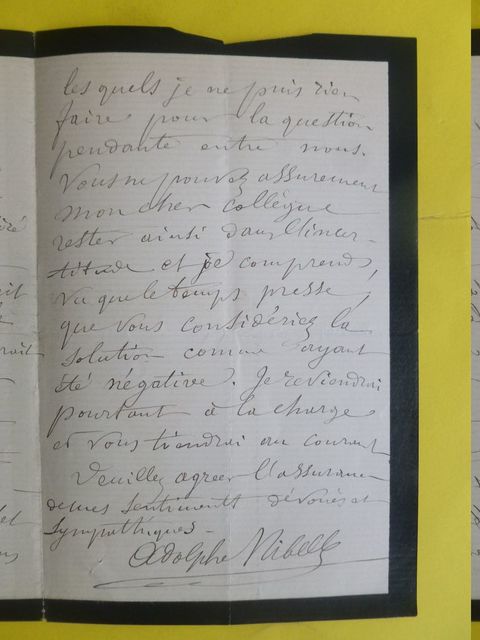 les quels je ne puis rien
faire pour la question
pendante entre nous.
Vous ne pouvez assurement
mon cher Collègue
rester ainsi dans l'incer-
titude et je comprends,
vu que le temps presse,
que vous considériez la
solution comme ayant
été négative. Je reviendrai
pourtant à la charge
et vous tiendrai au courant
Veuillez agreer l'assurance
de mes sentiments dévoués et
sympathiques -
Adolphe Nibelle